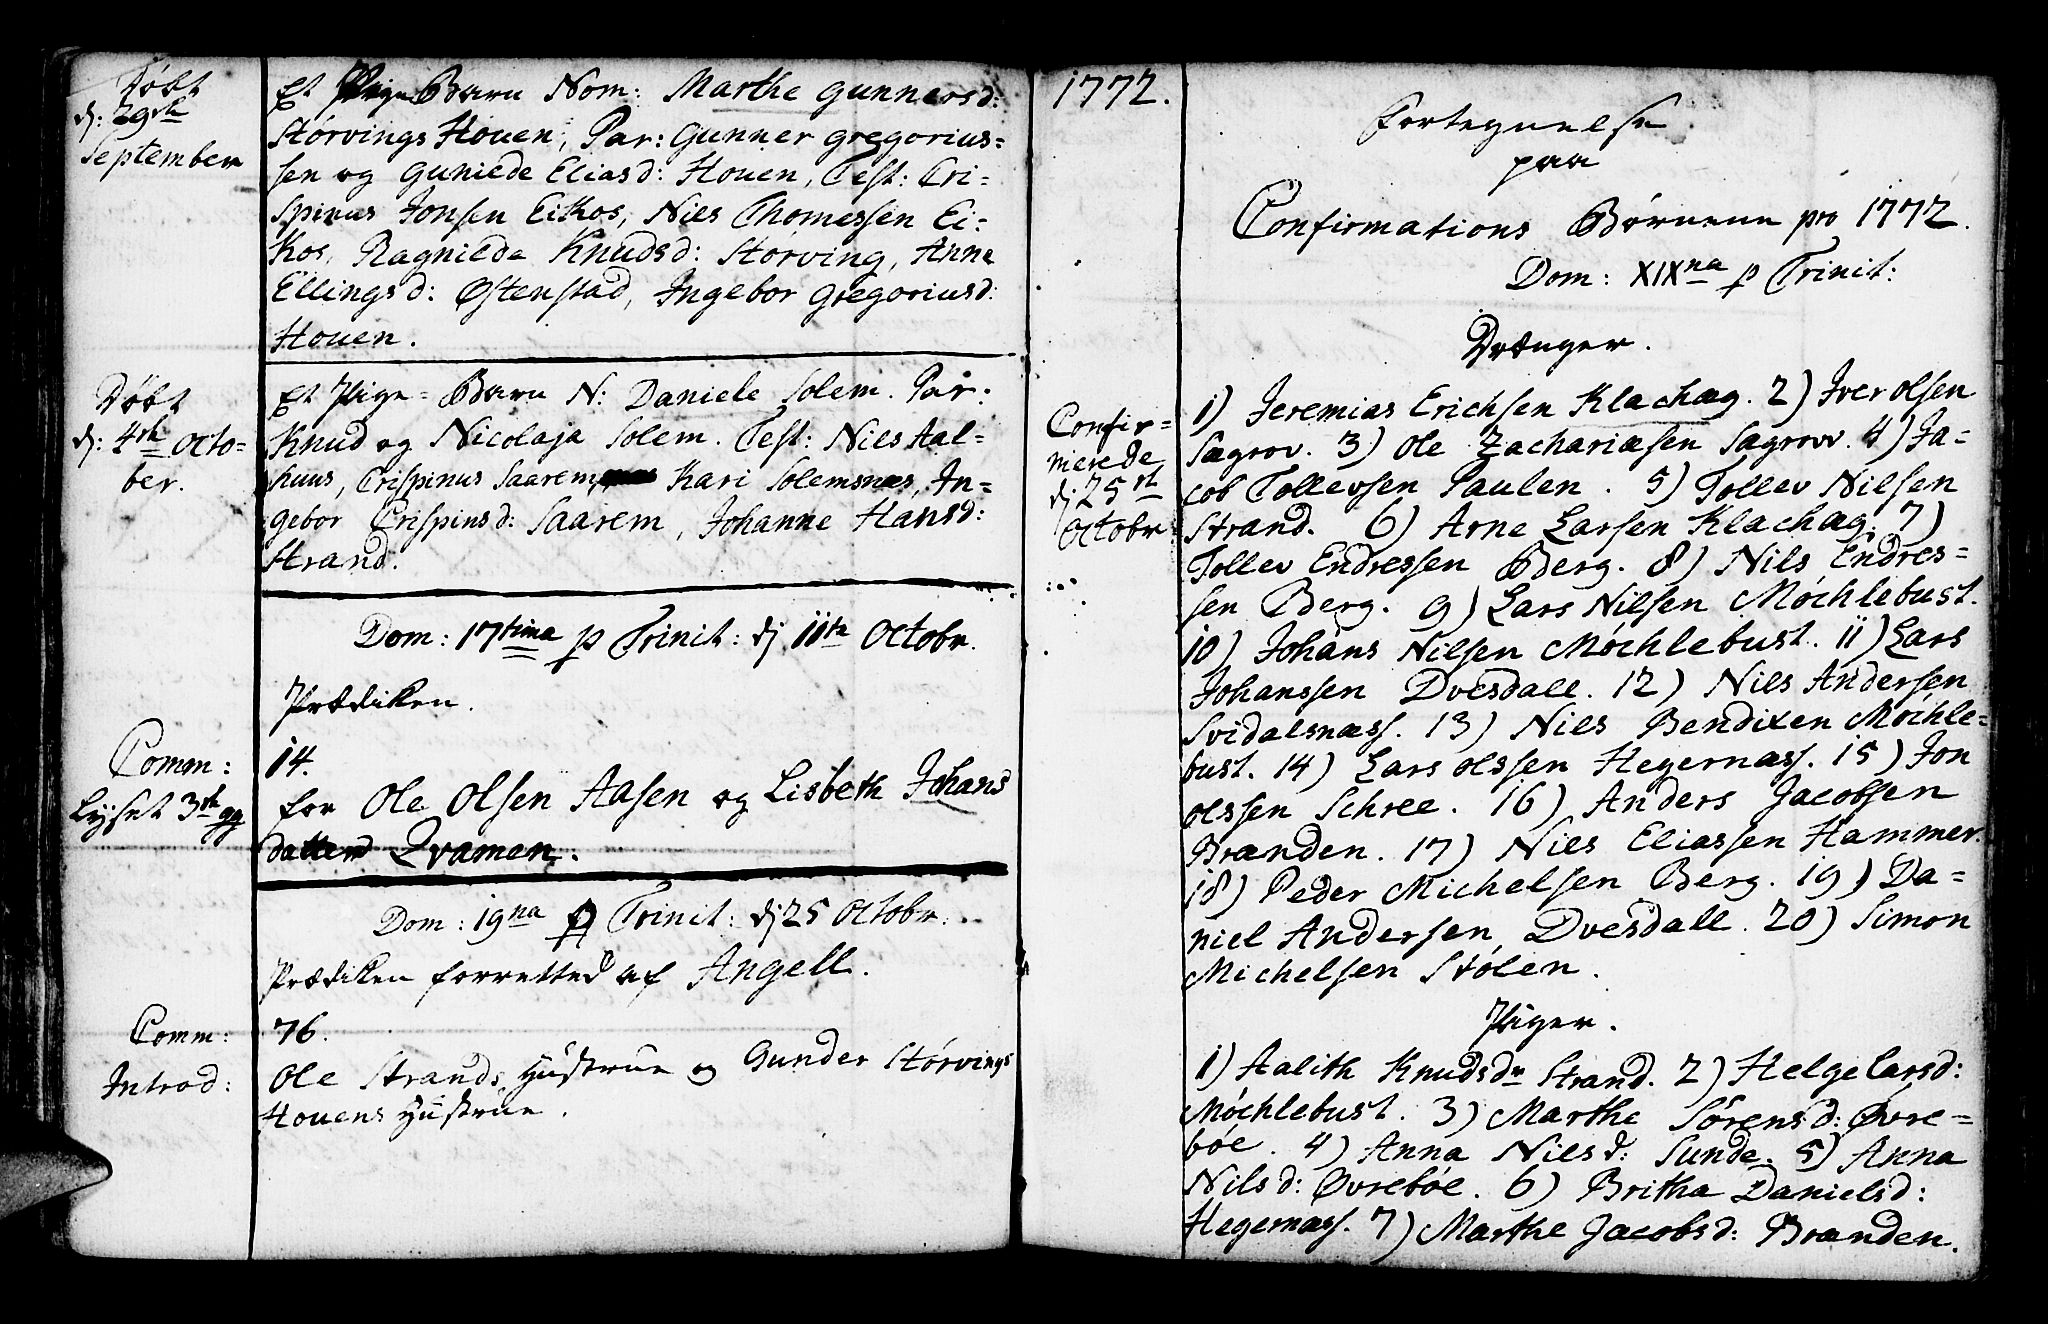 Døbt
d: 29de
September
Et Pige Barn Nom: Marthe Gunnersd:
Størvings Houen, Par: Gunner Gregorius-
sen og Guniede Eliasd: Houen, Test: Cri-
spinus Jonsen Eikos, Niels Thomessen Ei-
kos, Ragnilda Knudsd: Størving, Anne
Ellingsd: Østenstad, Ingebor Gregoriusd:
Houen.
Døbt
d: 4de Octo-
ber.
Et Pige-Barn N: Daniele Solem. Par:
Knud og Nicolaja Solem. Test: Niels Aal-
huus, Crispinus Saarem, Kari Solemsnæs, In-
gebor Crispinsd: Saarem, Johanne Hansd:
Strand.
Dom: 17tima p Trinit: dj 11te Octobr.
Prædiken.
Comm: 14.
Lyset 3de gg for Ole Olsen Aasen og Lisbeth Johans
datter Qvamen.
Dom: 19na p Trinit: dj 25 Octobr.
Prædiken forretted af Angell.
Comm: 76.
Introd: Ole Strands Hustrue og Gunder Størvings
Houens Hustrue.
1772.
Fortegnelse
paa
Confirmations Børnene pro 1772.
Dom: XIXna p Trinit:
Drænger.
Confir-
merede
dj 25de
Octobr
1) Jeremias Erichsen Klachæg. 2) Iver Olsen
Sagrov. 3) Ole Zachariæsen Sagrov. 4) Ja-
cob Tollevsen Paulen. 5) Tollev Nilsen
Strand. 6) Arne Larsen Klachæg. 7)
Tollev Endressen Berg. 8) Nils Endres-
sen Berg. 9) Lars Nilsen Møchlebust.
10) Johans Nilsen Møchlebust. 11) Lars
Johanssen Dvesdall. 12) Nils Andersen
Svidalsnæss. 13) Niels Bendixen Møchle-
bust. 14) Lars Olssen Hegernæss. 15) Jon
Olssen Schree. 16) Anders Jacobsen
Brænden. 17) Niels Eliassen Hammer.
18) Peder Michelsen Berg. 19) Da-
niel Andersen Dvesdall. 20) Simon
Michelsen Stølen.
Piger.
1) Aalith Knudsdr Strand. 2) Helge Larsd:
Møchlebust. 3) Marthe Sørensd: Øvre-
bøe. 4) Anna Nielsd: Sunde. 5) Anna
Nilsd: Øvrebøe. 6) Britha Danielsd:
Hegernæss. 7) Marthe Jacobsd: Brænden.